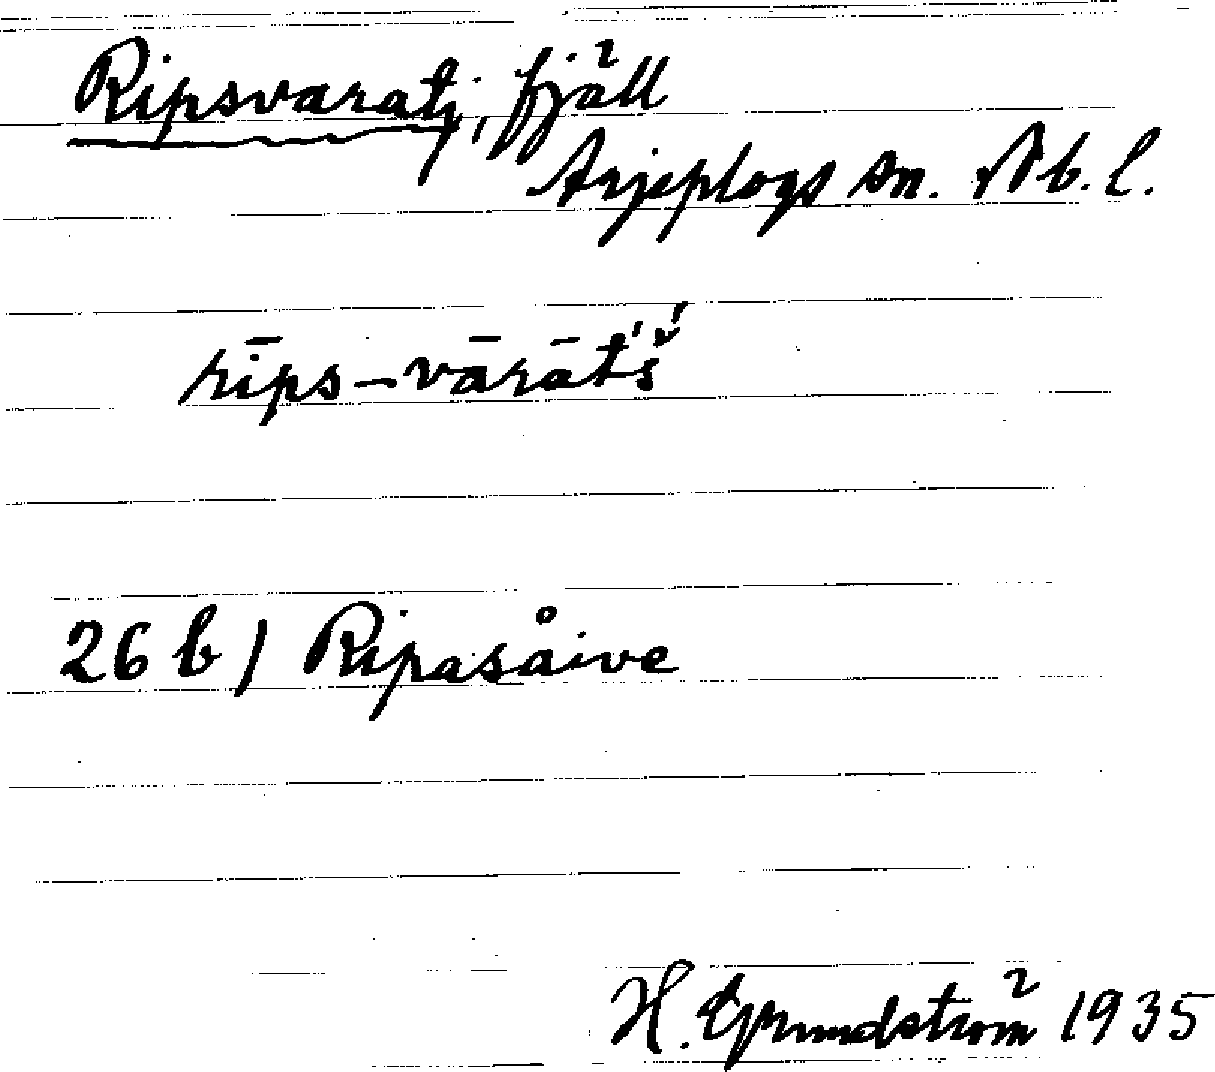 Ripsvaratj, fjäll
Arjeplogs sn. Nb. l.
rīps-vārāt́š́
26 b) Ripasåive
H. Grundström 1935